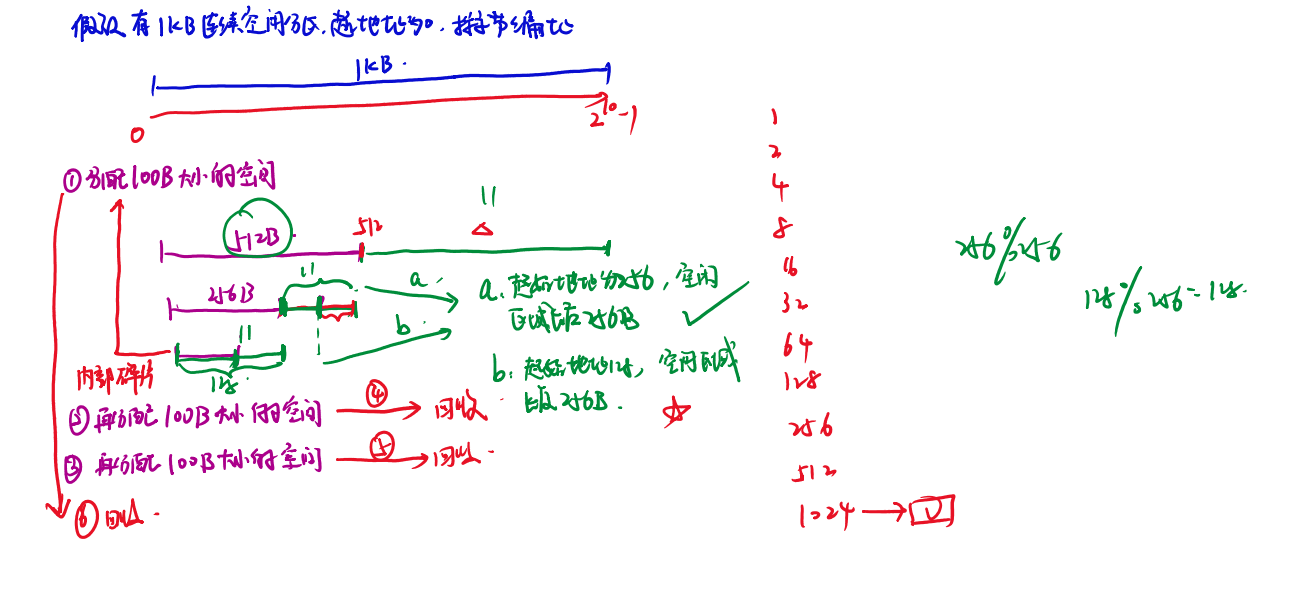 假设有1KB连续空闲分区,起始地址为0,按字节编址
1KB
0
2^10-1
① 分配100B大小的空间
512B
512
256B
a.
b.
128
内部碎片
a. 起始地址为256, 空闲
区域长度256B
b. 起始地址128, 空闲区域
长度256B.
② 再分配100B大小的空间
④
回收
③ 再分配100B大小的空间
⑤
回收
⑥ 回收
1
2
4
8
16
32
64
128
256
512
1024
256%256
128%256=128